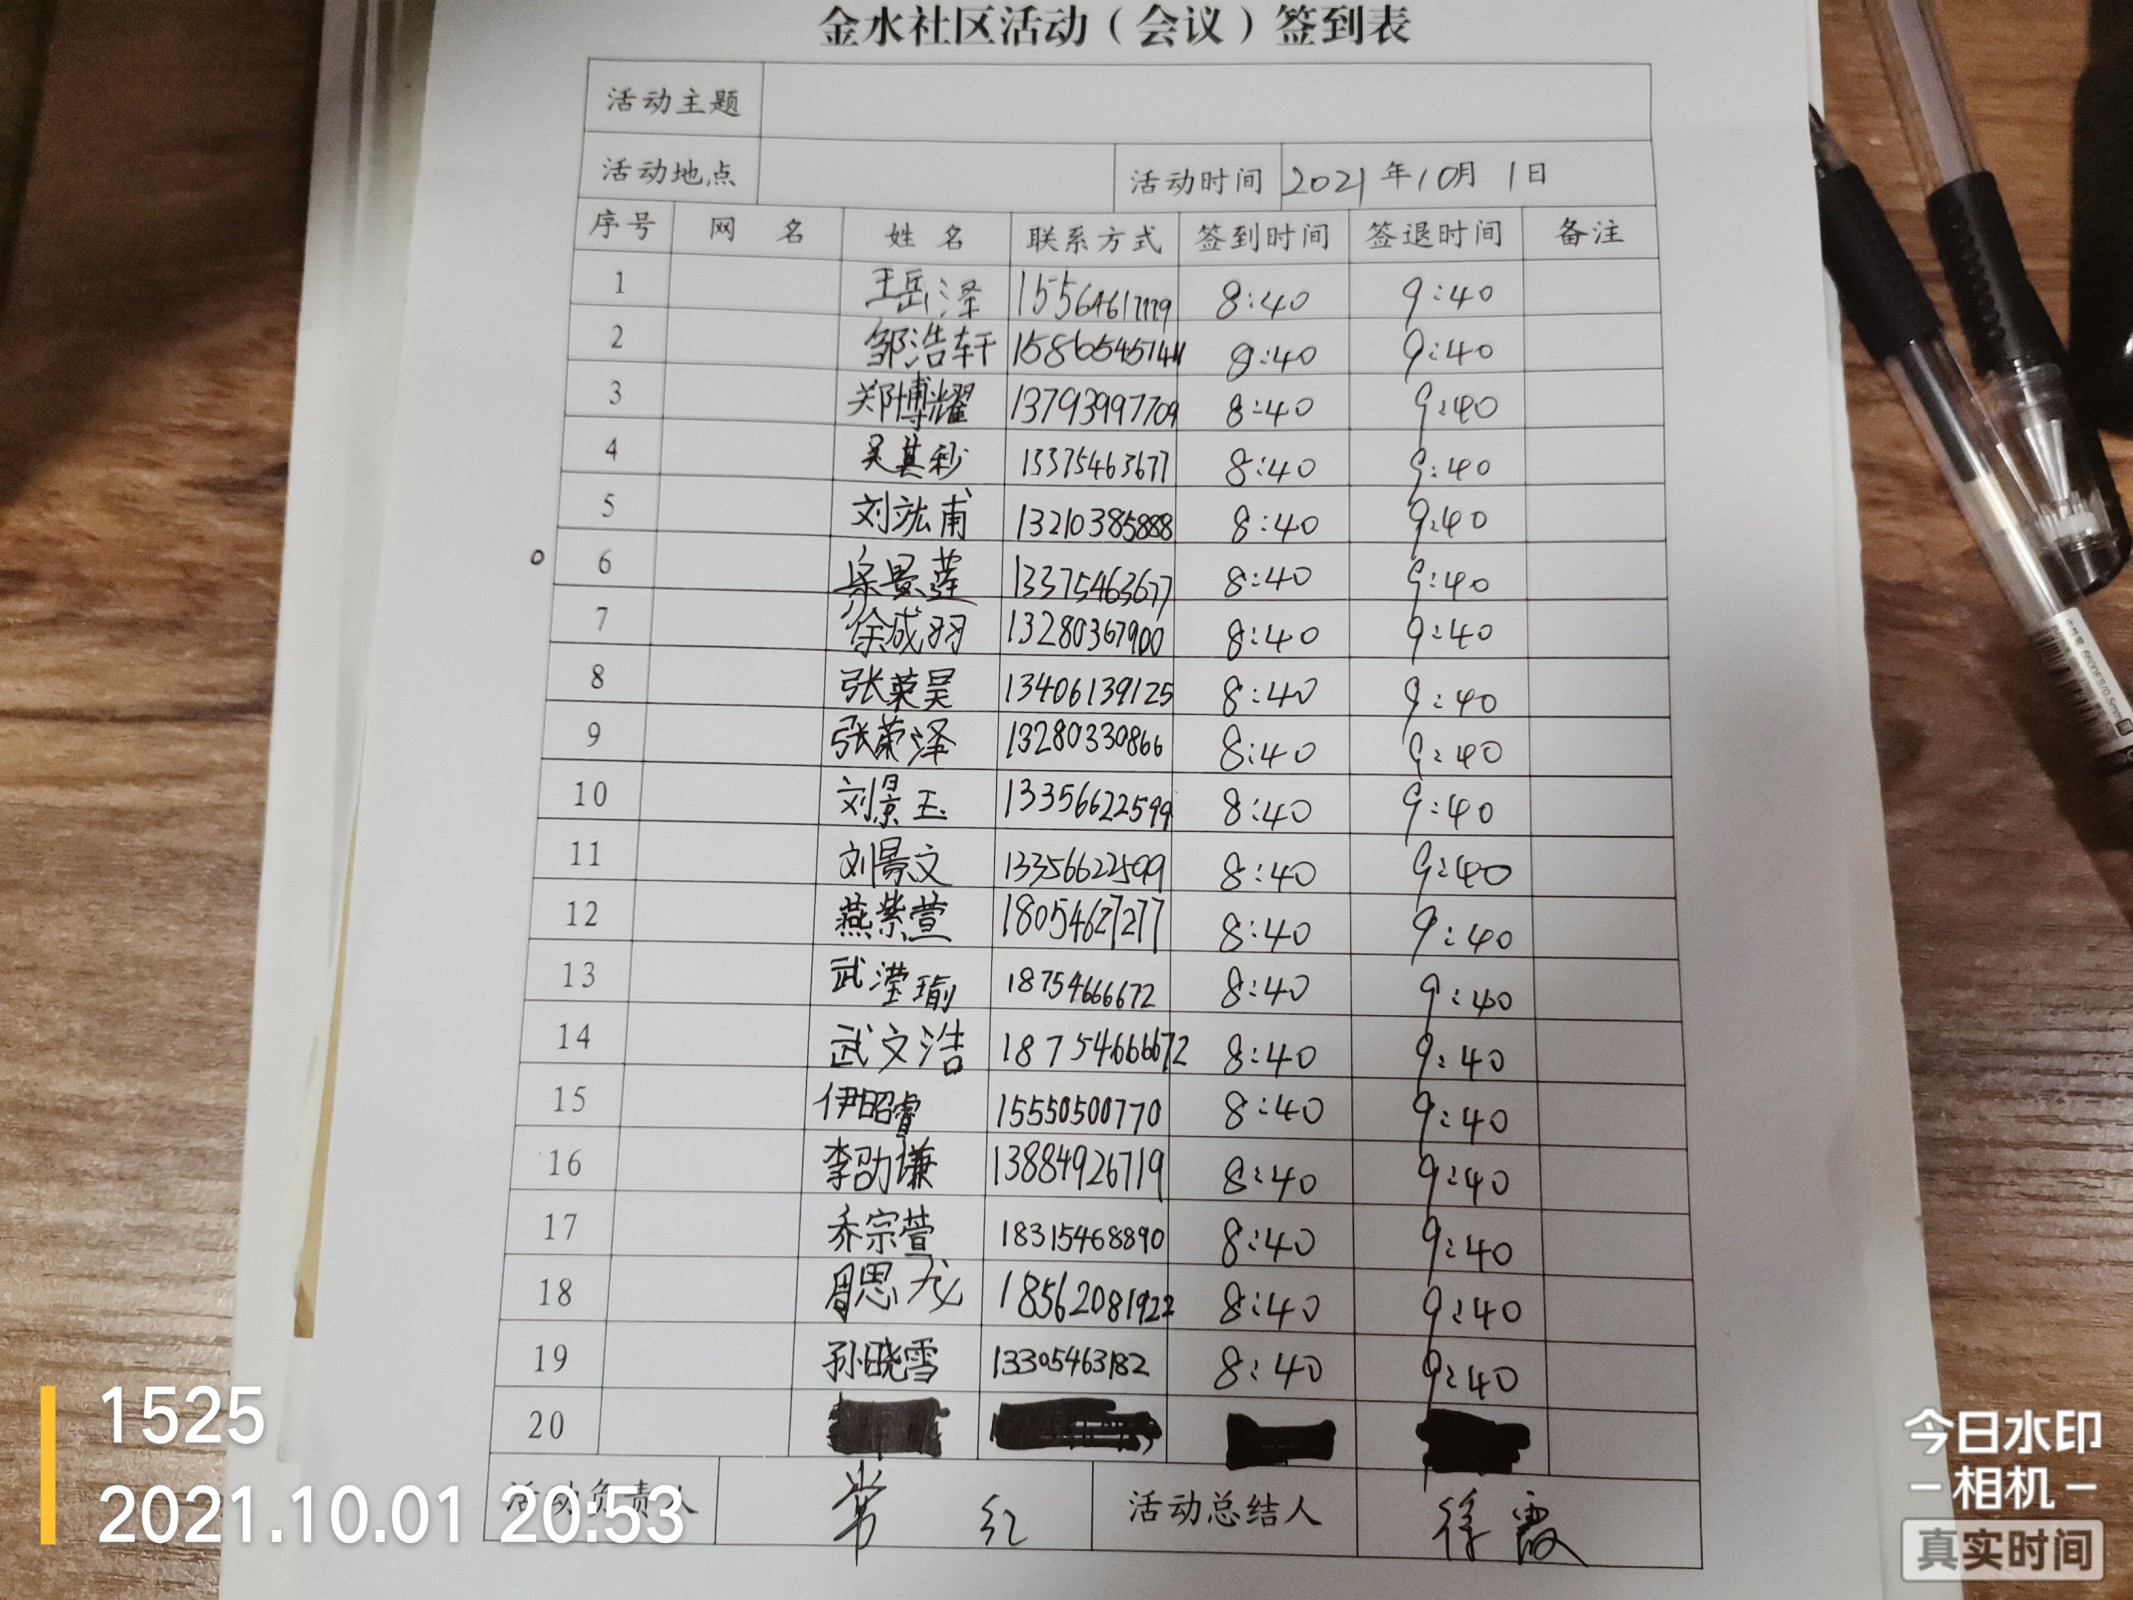 金水社区活动（会议）签到表
活动主题
活动地点 活动时间 2021年10月1日
序号 网名 姓名 联系方式 签到时间 签退时间 备注
1 王岳泽 8:40 9:40
2 邹浩轩 8:40 9:40
3 郑博耀 13793997709 8:40 9:40
4 吴其彩 13375463677 8:40 9:40
5 刘竑甫 13210385888 8:40 9:40
6 梁景莲 13375463677 8:40 9:40
7 徐成羽 13280367900 8:40 9:40
8 张荣昊 13406139125 8:40 9:40
9 张荣泽 13280330866 8:40 9:40
10 刘景玉 13356622599 8:40 9:40
11 刘景文 13356622599 8:40 9:40
12 燕紫萱 18054627277 8:40 9:40
13 武滢瑜 18754666672 8:40 9:40
14 武文浩 18754666672 8:40 9:40
15 伊昭睿 15550500770 8:40 9:40
16 李劭谦 13884926719 8:40 9:40
17 乔宗萱 18315468890 8:40 9:40
18 周思龙 18562081922 8:40 9:40
19 孙晓雪 13305463182 8:40 9:40
20
活动负责人 常红 活动总结人 徐霞
1525
2021.10.01 20:53
今日水印
相机
真实时间